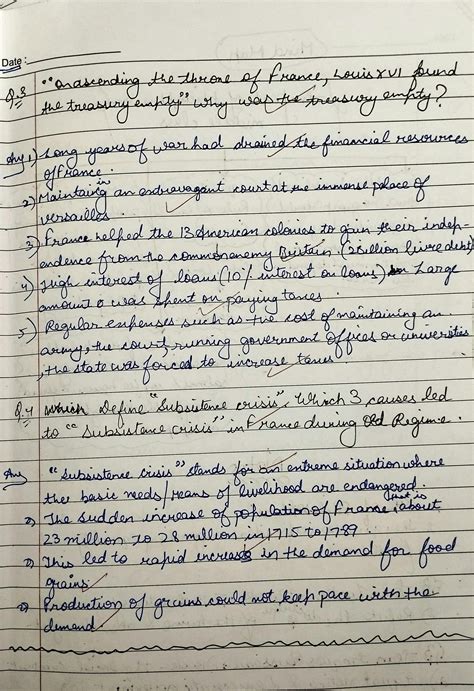 Date:
Q.3 "Onascending the throne of France, Louis XVI found
the treasury empty" Why was the treasury empty?
Ans 1) Long years of war had drained the financial resources
of France.
2) Maintaing in an extravagant court at the immense palace of
versailles
3) France helped the 13 American colonies to gain their indep-
endence from the common enemy Britain. (2 billion livre debt)
4) High interest of loans (10% interest on loans) Large
amount was spent on paying taxes.
5) Regular expenses such as the cost of maintaining an
army, the court, running government offices or universities
, the state was forced to increase taxes.
Q.4 Which Define "Subsistence crisis" Which 3 causes led
to "Subsistance crisis" in France during Old Regime.
Ans "Subsistence crisis" stands for an extreme situation where
the basic needs/means of livelihood are endangered.
The sudden increase of population of France, that is about
23 million to 28 million in 1715 to 1789.
This led to rapid increase in the demand for food
grains
Production of grains could not keep pace with the
demand.